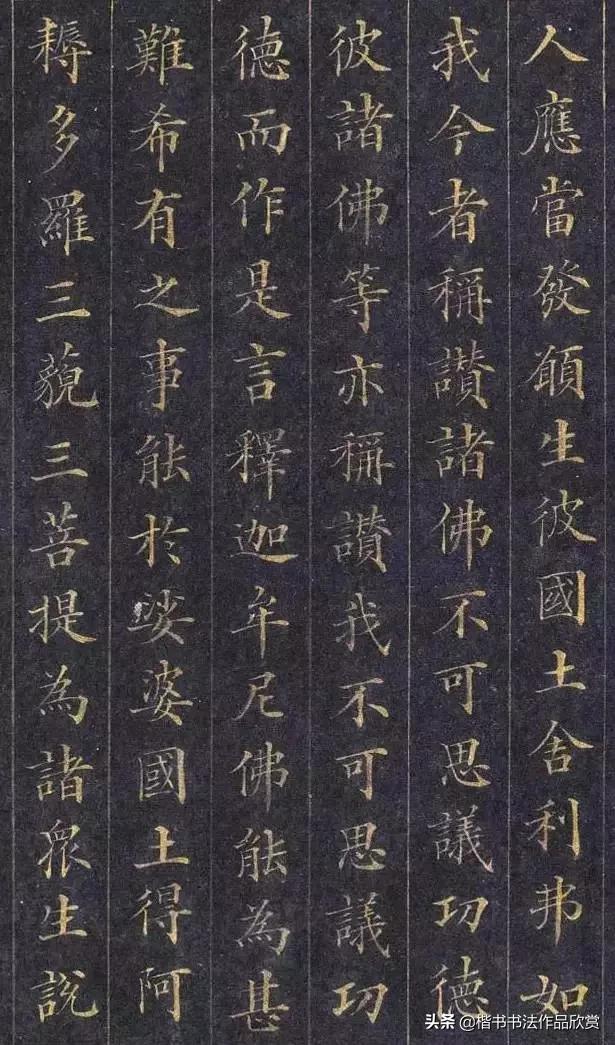 人應當發願生彼國土舍利弗如
我今者稱讚諸佛不可思議功德
彼諸佛等亦稱讚我不可思議功
德而作是言釋迦牟尼佛能為甚
難希有之事能於娑婆國土得阿
耨多羅三藐三菩提為諸眾生說
头条 @楷书书法作品欣赏